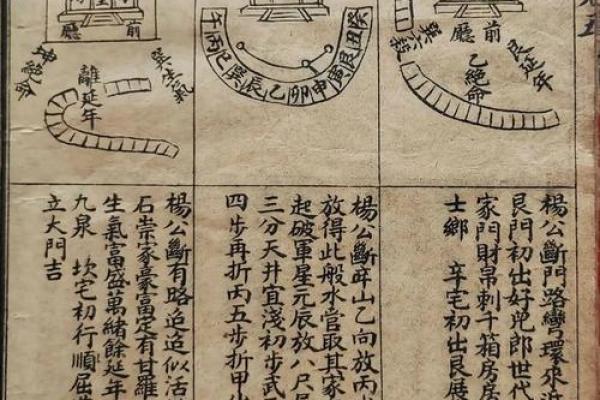 五
前廳
艮延年
乙絕命
巽六殺
癸丑艮寅申卯乙辰巽巳丙午
前廳
巽生氣
離延年
坤絕命
楊公斷門路彎環來近
艮門初出好兒郎世代
家門財帛刺千箱房房
士鄉 辛宅初出艮展
楊公斷辛山乙向放丙
放得此般水管取其家
起破軍星元辰放八尺
三分天井宜淺初步武
四步再折丙五步折甲
楊公斷有略追追似活
石崇家豪富定有甘羅
生氣富盛萬緒餘延年
九泉 坎宅初行順屈
立大門吉